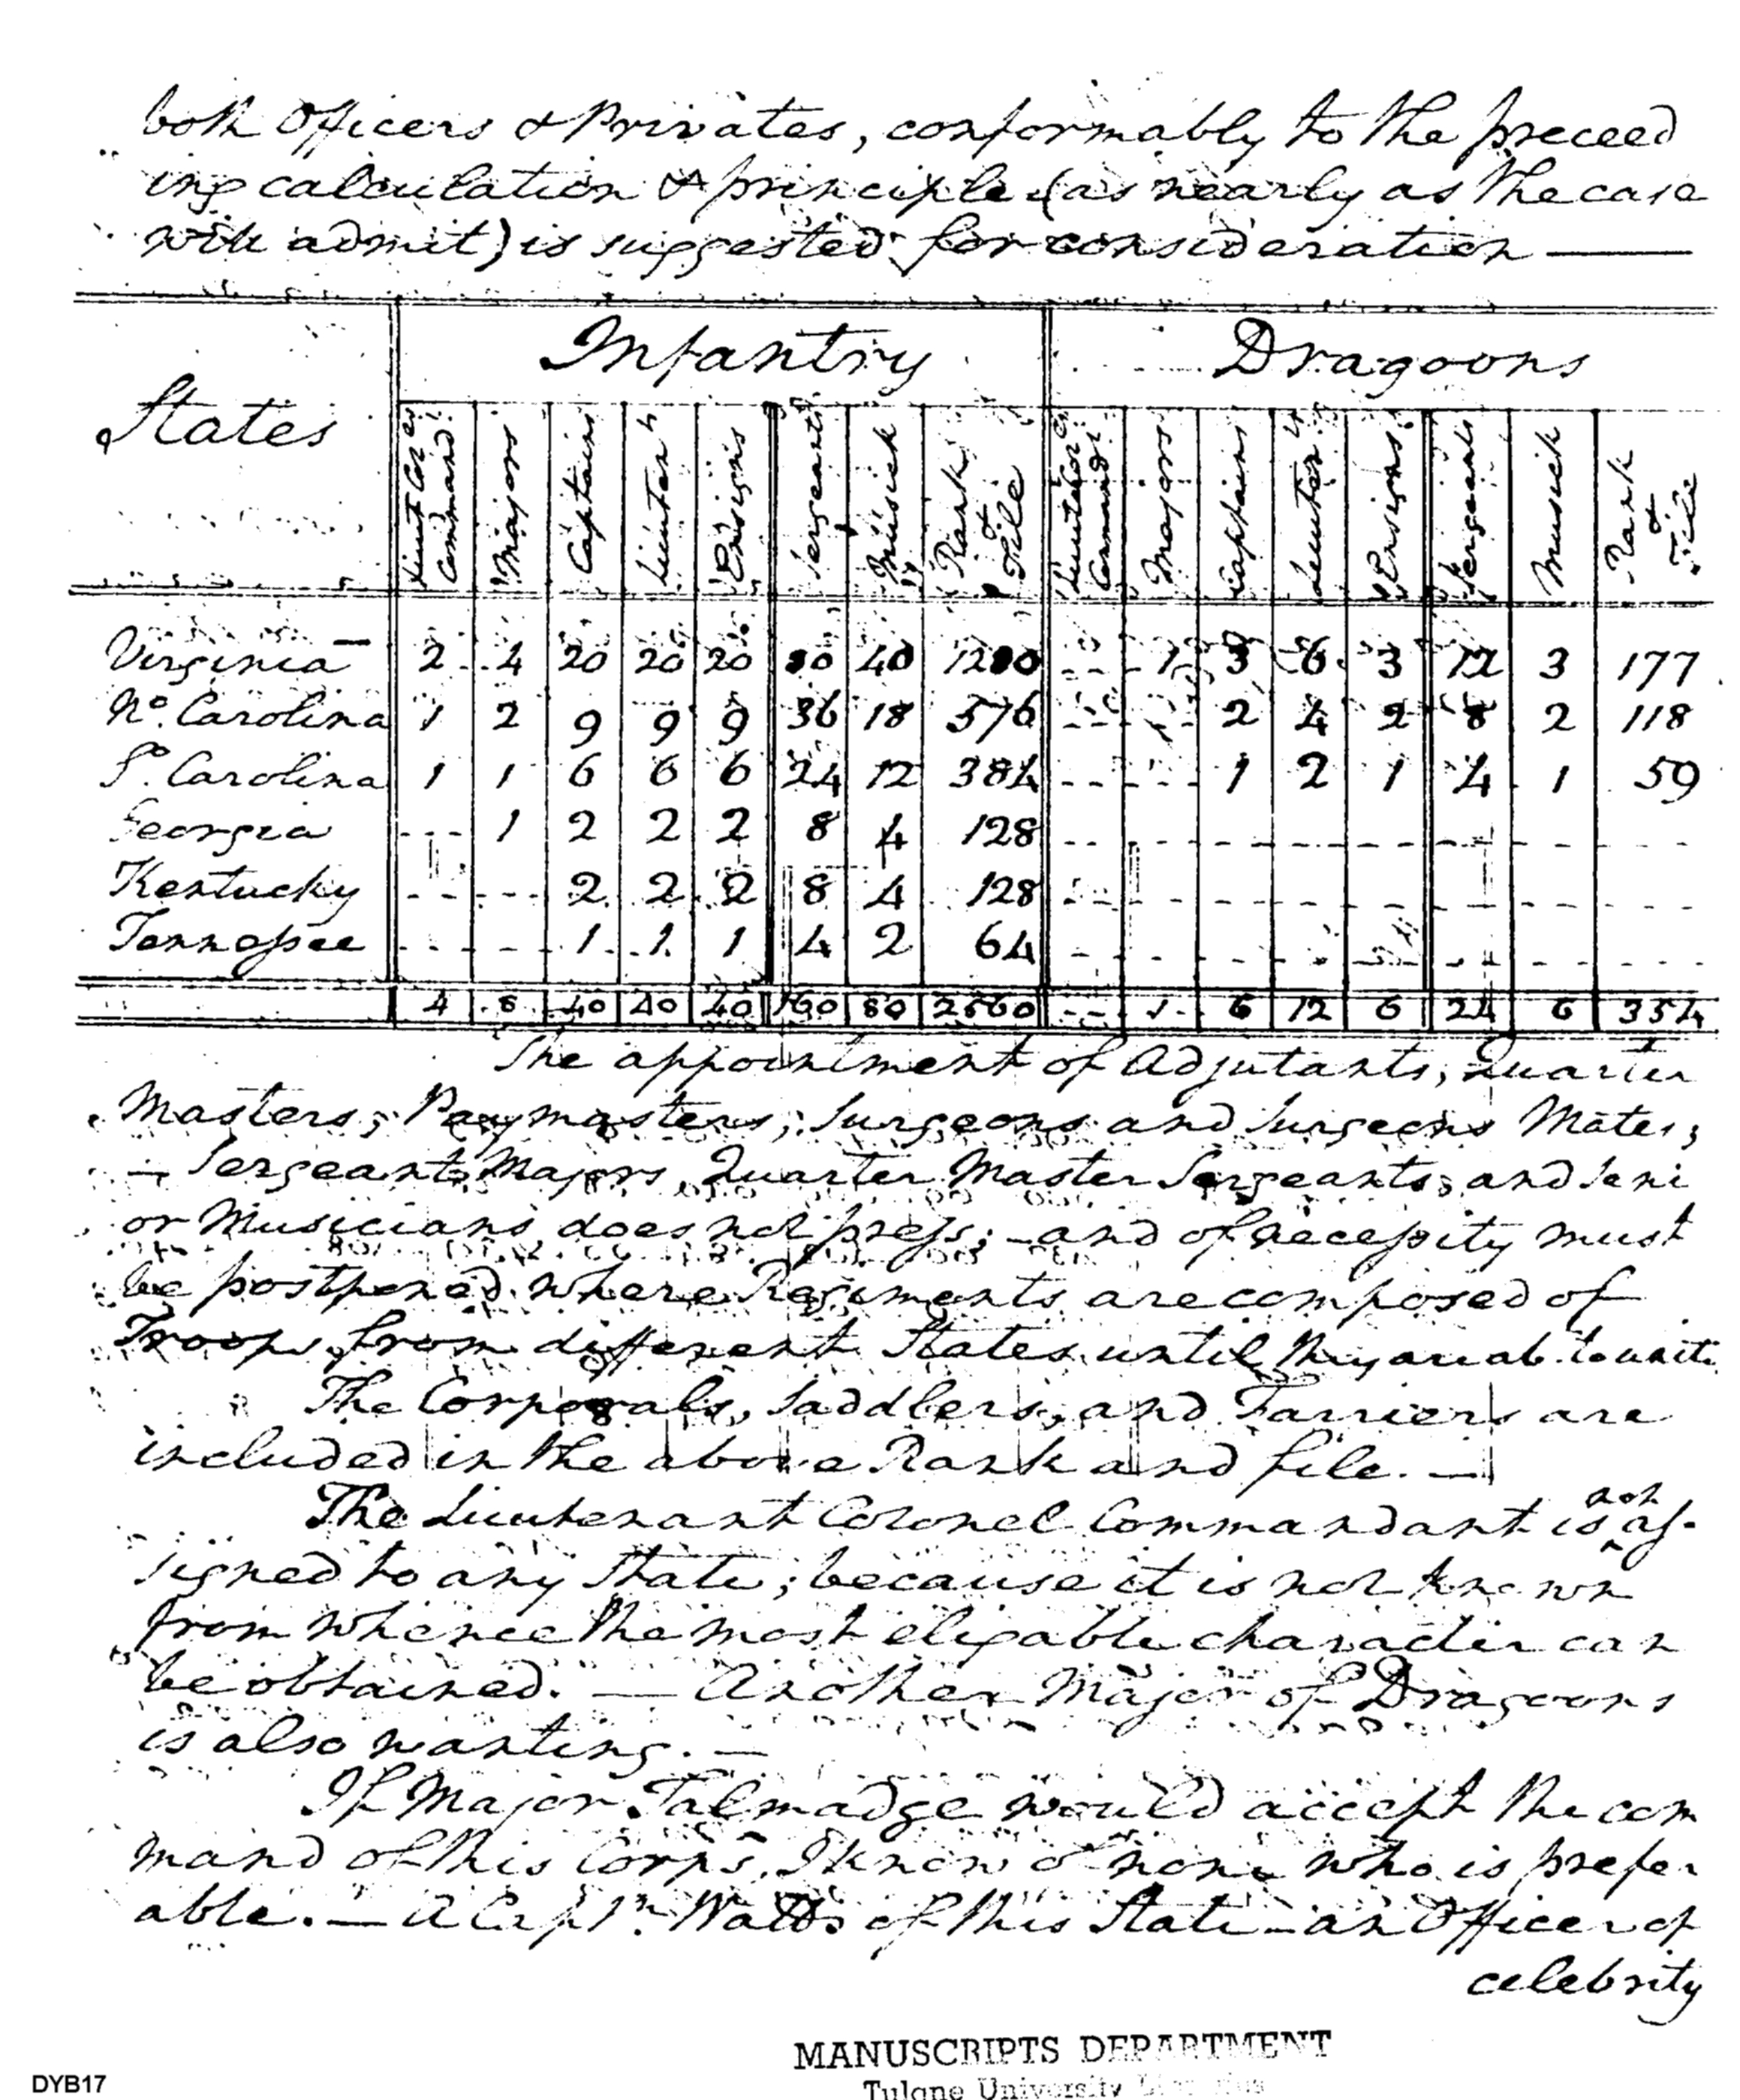 both Officers & Privates, conformably to the preceed
ing calculation & principle (as nearly as the case
will admit) is suggested for consideration —
States Infantry Dragoons
Lieut Col.es Command.t Majors Captains Lieuten.ts Ensigns Sergeants Musick Rank & File Lieut Col.es Command.t Majors Captains Lieuten.ts Ensigns Sergeants Musick Rank & File
Virginia 2 4 20 20 20 80 40 1280 -- 1 3 6 3 12 3 177
No. Carolina 1 2 9 9 9 36 18 576 -- -- 2 4 2 8 2 118
So. Carolina 1 1 6 6 6 24 12 384 -- -- 1 2 1 4 1 59
Georgia -- 1 2 2 2 8 4 128 -- -- -- -- -- -- -- --
Kentucky -- -- 2 2 2 8 4 128 -- -- -- -- -- -- -- --
Tennessee -- -- 1 1 1 4 2 64 -- -- -- -- -- -- -- --
4 8 40 40 40 160 80 2560 -- 1 6 12 6 24 6 354
The appointment of Adjutants, Quarter
Masters, Paymasters, Surgeons and Surgeons Mates;
— Sergeant Majors, Quarter Master Sergeants, and Seni
or Musicians does not press; — and of necessity must
be postponed where Regiments are composed of
Troops from different States until they are ab. to unite
The Corporals, Saddlers, and Farriers are
included in the above Rank and file. —
The Lieutenant Colonel Commandant is not as-
signed to any State; because it is not known
from whence the most eligable character can
be obtained. — Another Major of Dragoons
is also wanting. —
If Major Talmadge would accept the com
mand of this Corps, I know of none who is prefer
able. — A Capt.n Watts of this State – an Officer of
celebrity
MANUSCRIPTS DEPARTMENT
Tulane University
DYB17